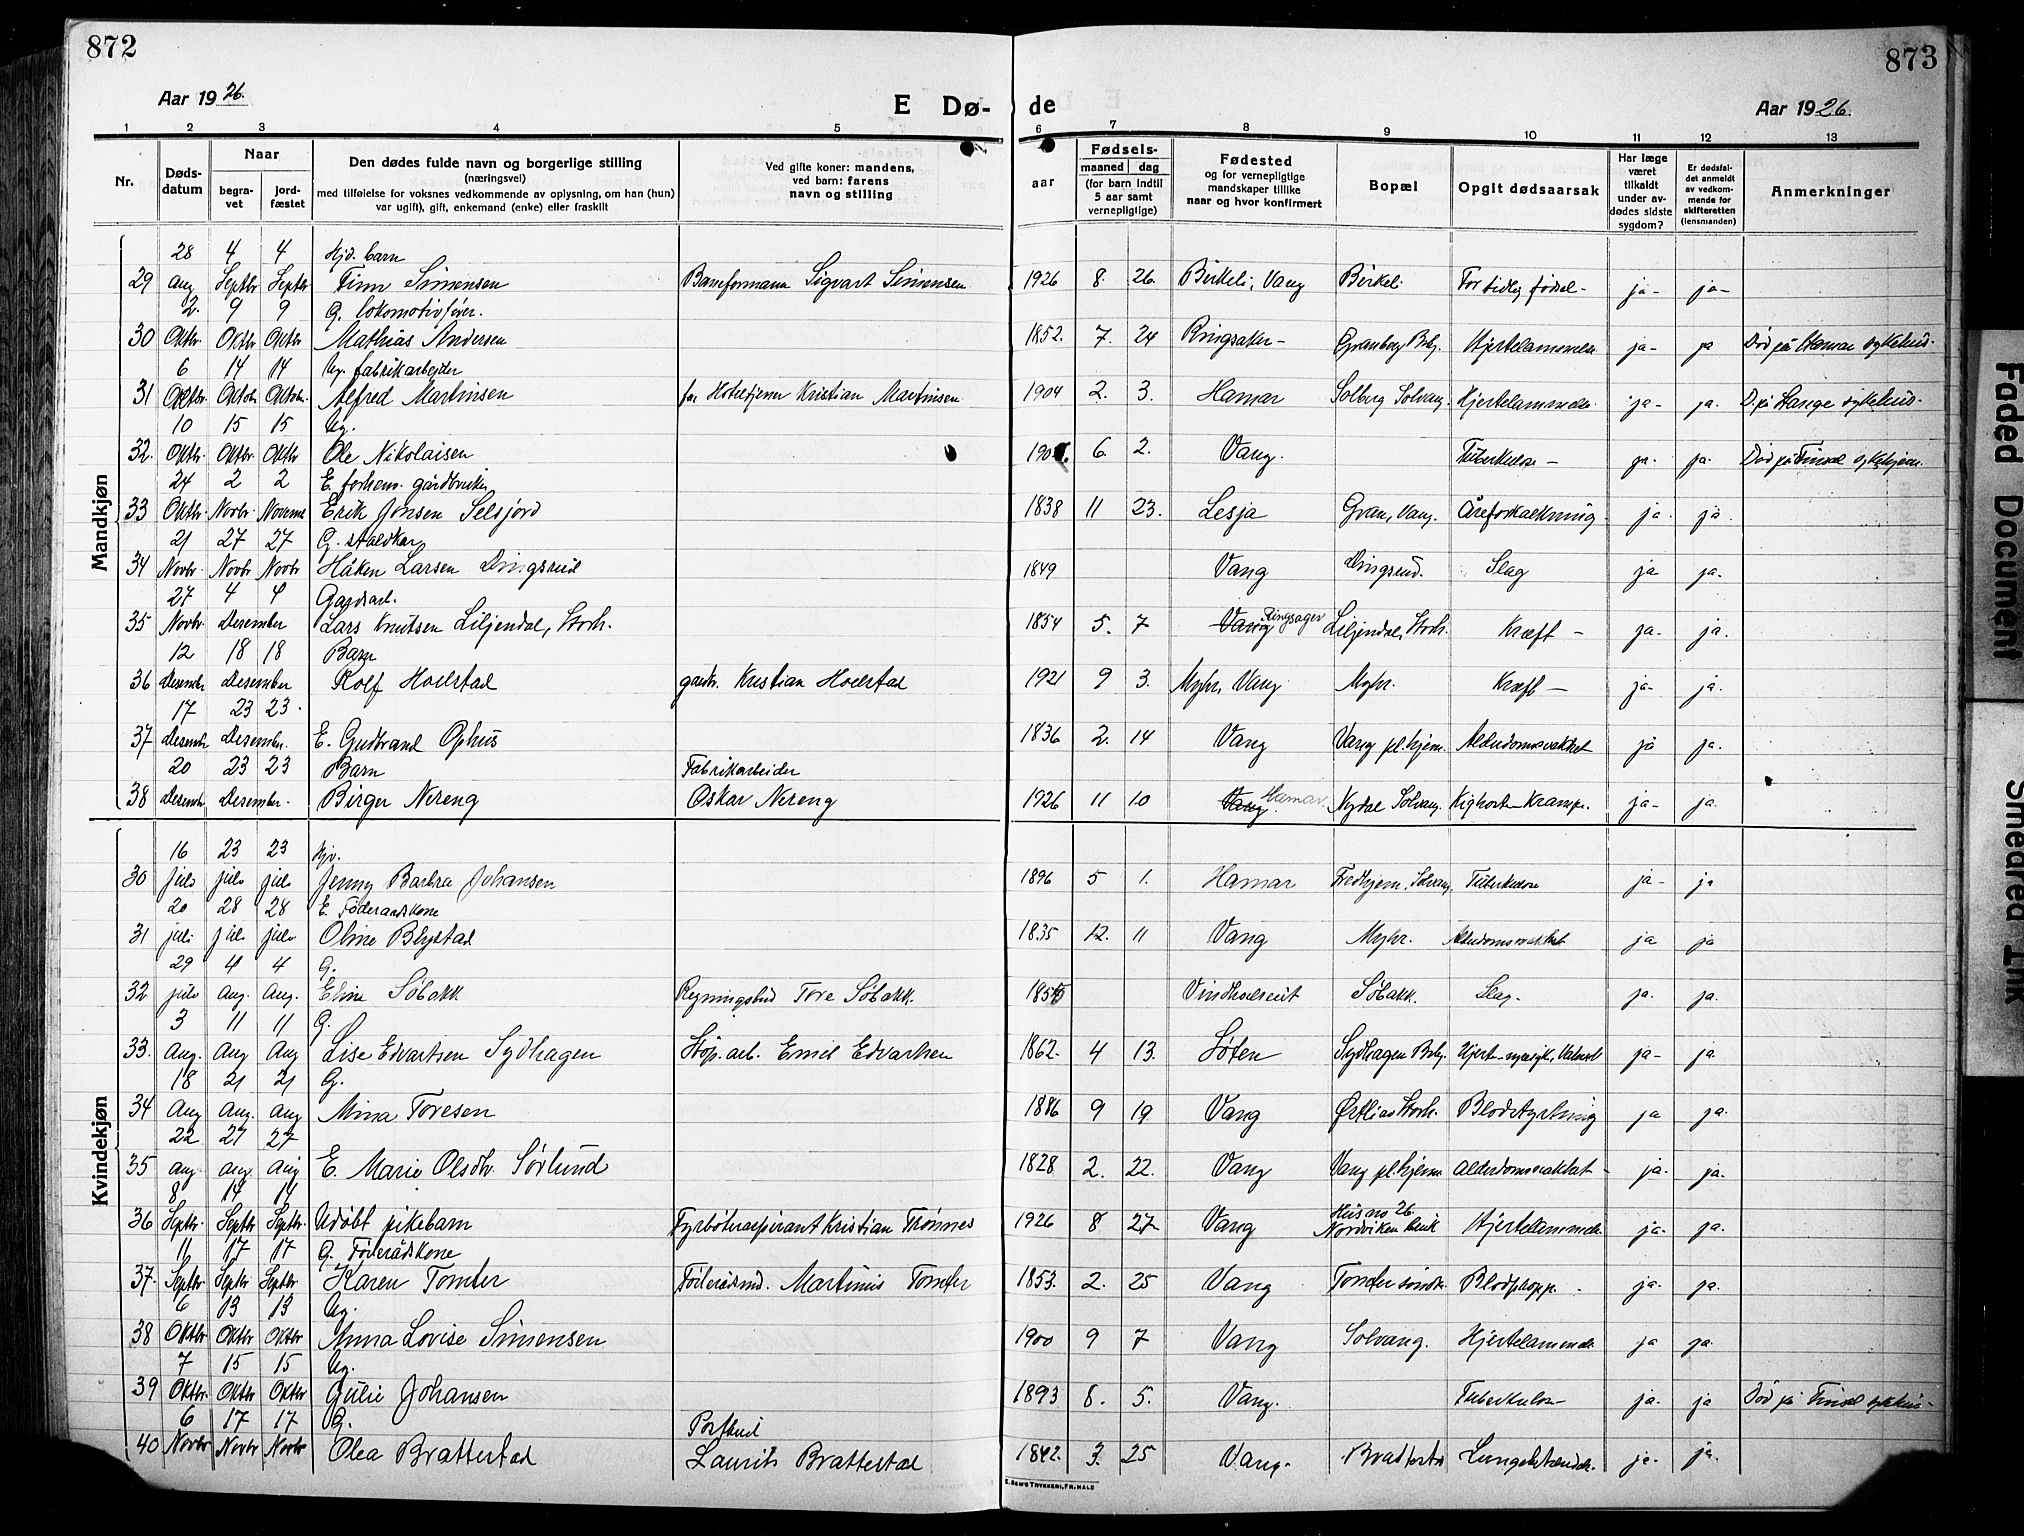 872
873
Aar 1926.
E Dø-
de
Aar 1926.
1 2 3 4 5 6 7 8 9 10 11 12 13
Nr.
Døds-
datum
Naar
begra-
vet
jord-
fæstet
Den dødes fulde navn og borgerlige stilling
(næringsvei)
med tilføielse for voksnes vedkommende av oplysning, om han (hun)
var ugift), gift, enkemand (enke) eller fraskilt
Ved gifte koner: mandens,
ved barn: farens
navn og stilling
aar
Fødsels-
maaned dag
(for barn indtil
5 aar samt
vernepligtige)
Fødested
og for vernepligtige
mandskaper tillike
naar og hvor konfirmert
Bopæl
Opgit dødsaarsak
Har læge
været
tilkaldt
under av-
dødes sidste
sygdom?
Er dødsfal-
det anmeldt
av vedkom-
mende for
skifteretten
(lensmanden)
Anmerkninger
Mandkjøn
28 4 4 Hjd. barn
29 Aug Septbr Septbr Finn Simensen Baneformann Sigvart Simensen 1926 8. 26. Birkeli, Vang Birkeli For tidlig fødsel - ja- ja-
2. 9 9 G. lokomotivfører.
30 Oktbr. Oktbr Oktbr Mathias Andersen 1852. 7. 24 Ringsaker - Granberg Brby. Hjertelammelse ja- ja Død på Hamar sykehus.
6 14 14 Ug. fabrikarbejder
31 Oktbr. Oktobr Oktobr. Alfred Martinsen far Hoteltjener Kristian Martinsen 1904 2. 3. Hamar Solberg Solvang. Hjertelammelse. ja- ja. D. på Stange sykehus.
10 15 15 Ug.
32. Oktbr. Oktbr. Oktbr Ole Nikolaisen 6. 2. Vang. Tuberkulose - ja. ja. Død på sykehjem.
24 2 2 E. forhenv. gårdbruker
33 Oktbr Novbr. Novembr Erik Jonsen Selsjord 1838 11 23. Lesja Gran, Vang. Åreforkalkning. ja ja
21 27 27 G. staldkar
34 Novbr. Novbr Novbr Håken Larsen Dingsrud 1849 Vang Dingsrud. Slag ja ja.
27 4 4 Gardsarb.
35 Novbr. Desember Lars Knutsen Liljendal, Storh. 1854 5. 7 Vang Ringsager Liljendal, Storh. Kræft - ja- ja.
12 18 18 Barn
36 Desember Desember Rolf Hoelstad gardbr. Kristian Hoelstad 1921 9 3. Myhr, Vang Myhr. Kræft - ja- ja.
17 23 23.
37 Desembr Desember. E. Gudbrand Ophus 1836 2. 14 Vang Vang pl.hjem. Alderdomssvakhet ja ja.
20 23 23 Barn Fabrikarbeider
38 Desembr. Desember. Birger Nereng Oskar Nereng 1926 11 10 Vang Hamar. Nydal Solvang. Kighoste-Krampe. ja- ja.
Kvindekjøn
16 23 23 Hjv.
30 juli juli juli Jenny Barbra Johansen 1896 5 1. Hamar Fredhjem, Solvang. Tuberkulose ja- ja
20 28 28 E. Føderaadskone
31 juli juli juli Oline Blystad 1835 12. 11 Vang Myhr. Alderdomssvakhet ja ja
29 4 4 G.
32 juli Aug. Aug. Eline Søbakk Regningsbud Tore Søbakk. Søbakk. Slag. ja. ja.
3 11 11 G.
33. Aug. Aug Aug Lise Edvartsen Sydhagen Støp. arb. Emil Edvartsen 1862. 4 13. Løten Sydhagen Brby. ja- ja.
18 21 21 G.
34 Aug Aug. Aug Mina Toresen 1886 9 19. Vang Storh. Blodstyrtning ja ja.
22 27 27
35 Aug. Aug Aug E. Marie Olsdtr. Sørlund 1828 2. 22. Vang Vang pl.hjem Alderdomssvakhet - ja. ja.
8 14 14
36 Septbr. Septbr Septbr. Udøbt pikebarn Fyrbøteraspirant Kristian Trønnes 1926 8 27 Vang Hus no 26 Nordviken bruk Hjertelammelse ja- ja.
11 17 17 G. Føderådskone
37. Septbr Septbr Septbr Karen Tomter Føderådsmd. Martinus Tomter 1853. 2. 25 Vang Blodpropp. ja- ja.
6 13 13 Ug.
38 Oktbr Oktbr Oktbr Anna Lovise Simensen 1900 9 7 Vang Solvang. Hjertelammelse ja ja.
7 15 15 Ug.
39 Oktbr. Oktbr Oktbr Julie Johansen 1893 8. 5. Vang. Tuberkulose- ja. ja Død på
6 17 17 G. Postbud
40 Novbr Novbr Novbr Olea Brattestad Laurits Brattestad 1842. 3. 25 Vang. Lungebetændelse. ja- ja.
E. SEM'S TRYKKERI, FR.HALD
Faded Document
Smeared Ink